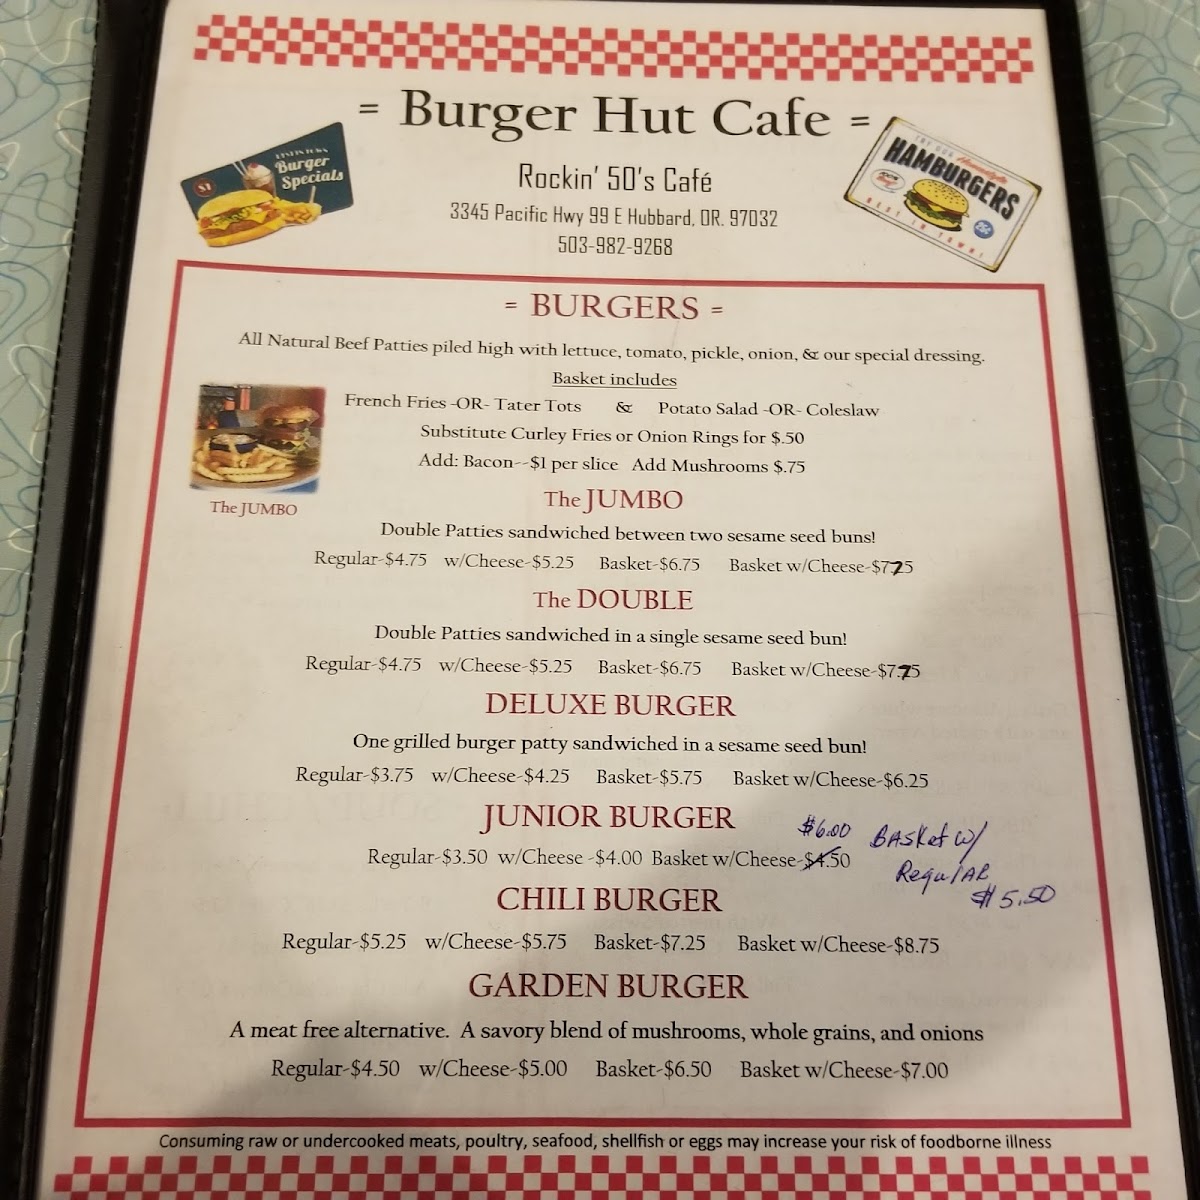 = Burger Hut Cafe =
Burger
Specials
$1
HAMBURGERS
BEST IN TOWN!
25¢
Rockin' 50's Café
3345 Pacific Hwy 99 E Hubbard, OR. 97032
503-982-9268
= BURGERS =
All Natural Beef Patties piled high with lettuce, tomato, pickle, onion, & our special dressing.
Basket includes
French Fries -OR- Tater Tots & Potato Salad -OR- Coleslaw
Substitute Curley Fries or Onion Rings for $.50
Add: Bacon--$1 per slice Add Mushrooms $.75
The JUMBO
The JUMBO
Double Patties sandwiched between two sesame seed buns!
Regular-$4.75 w/Cheese-$5.25 Basket-$6.75 Basket w/Cheese-$7.75
The DOUBLE
Double Patties sandwiched in a single sesame seed bun!
Regular-$4.75 w/Cheese-$5.25 Basket-$6.75 Basket w/Cheese-$7.75
DELUXE BURGER
One grilled burger patty sandwiched in a sesame seed bun!
Regular-$3.75 w/Cheese-$4.25 Basket-$5.75 Basket w/Cheese-$6.25
JUNIOR BURGER
$6.00 BASket w/
Regular-$3.50 w/Cheese -$4.00 Basket w/Cheese-$4.50
RegulAR
$5.50
CHILI BURGER
Regular-$5.25 w/Cheese-$5.75 Basket-$7.25 Basket w/Cheese-$8.75
GARDEN BURGER
A meat free alternative. A savory blend of mushrooms, whole grains, and onions
Regular-$4.50 w/Cheese-$5.00 Basket-$6.50 Basket w/Cheese-$7.00
Consuming raw or undercooked meats, poultry, seafood, shellfish or eggs may increase your risk of foodborne illness